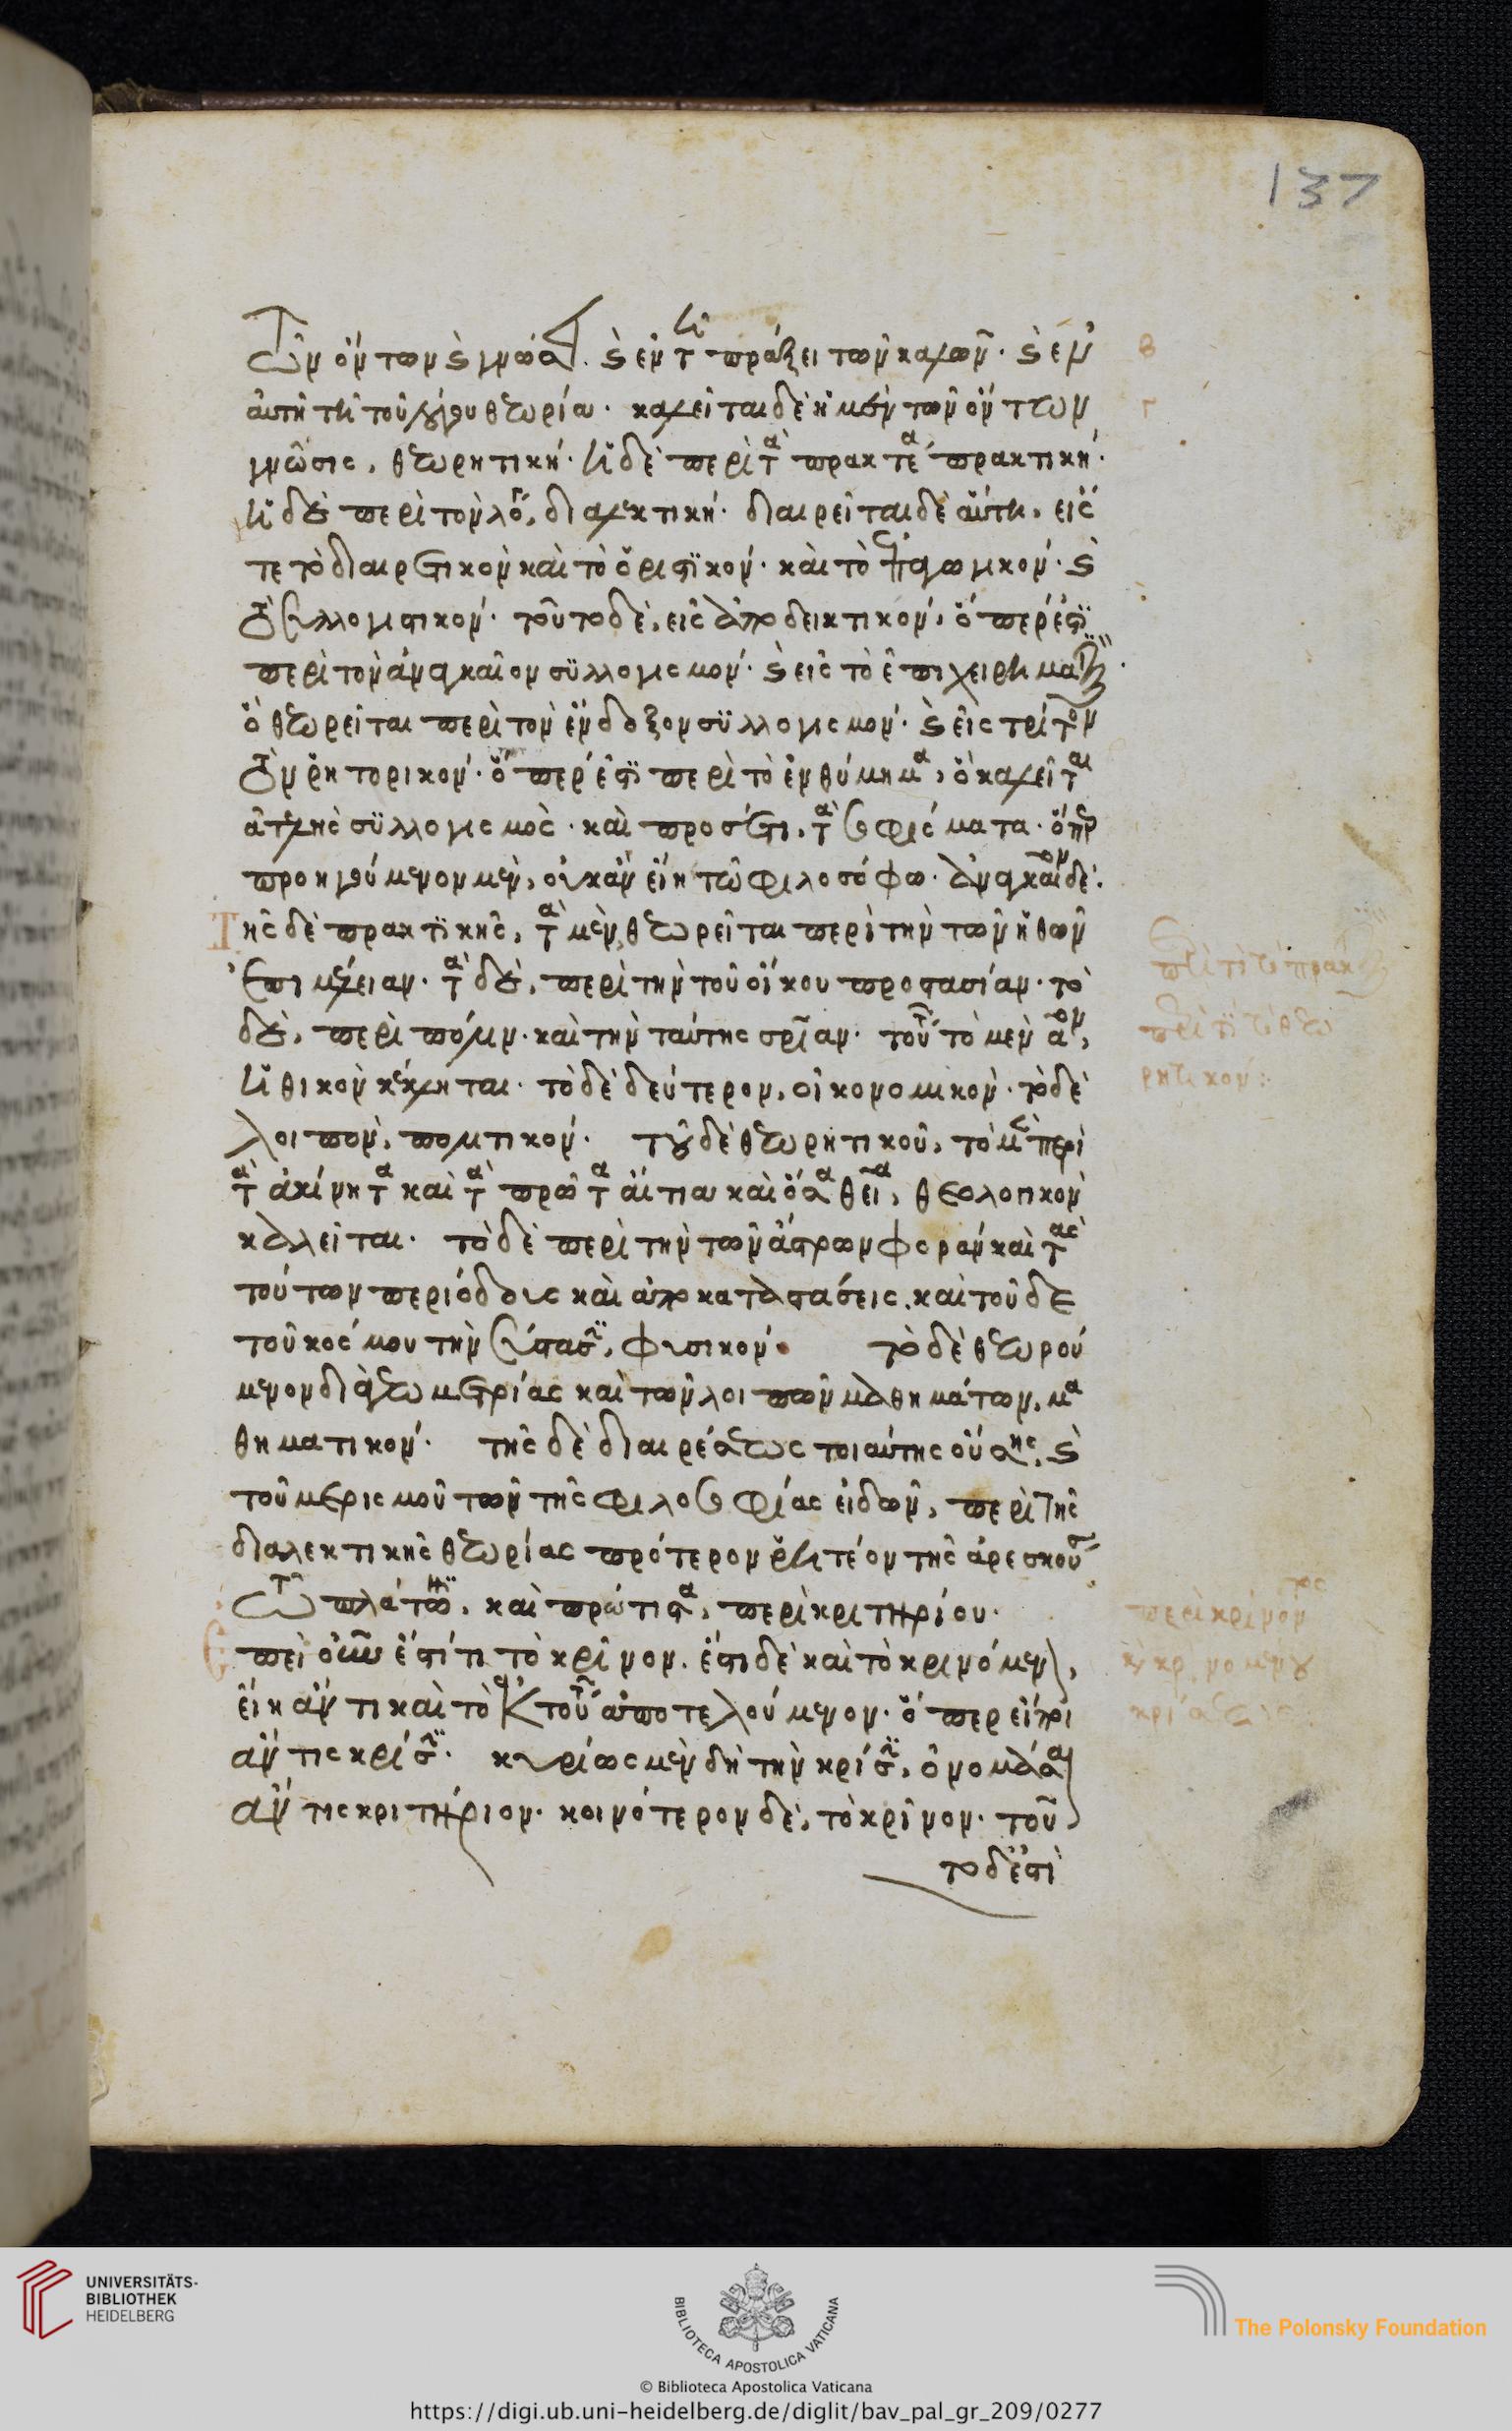 137
τῶν ὄντων καὶ γνώσει. καὶ ἐν τῇ πράξει τῶν καλῶν· καὶ ἐν
αὐτῇ τῇ τοῦ λόγου θεωρία· καλεῖται δὲ ἡ μὲν τῶν ὄντων
γνῶσις, θεωρητική· ἡ δὲ περὶ τὰ πρακτέα πρακτική·
ἡ δὲ περὶ τὸν λόγον, διαλεκτική· διαιρεῖται δὲ αὕτη, εἴς
τε τὸ διαιρετικὸν καὶ τὸ ὁριστικόν· καὶ τὸ ἐπαγωγικόν· καὶ
τὸ συλλογιστικόν· τοῦτο δὲ, εἰς ἀποδεικτικόν, ὅπερ ἐστὶ
περὶ τὸν ἀναγκαῖον συλλογισμόν· καὶ εἰς τὸ ἐπιχειρηματικόν.
ὃ θεωρεῖται περὶ τὸν ἔνδοξον συλλογισμόν· καὶ εἰς τρίτον
τὸν ῥητορικόν· ὅπερ ἐστὶ περὶ τὸ ἐνθύμημα, ὃ καλεῖται
ἀτελὴς συλλογισμὸς· καὶ προσέτι, τὰ σοφίσματα· ὅπερ
προηγούμενον μὲν, οὐκ ἂν εἴη τῷ φιλοσόφω· ἀναγκαῖον δέ.
Τῆς δὲ πρακτικῆς, τὰ μὲν θεωρεῖται περὶ τὴν τῶν ἠθῶν
ἐπιμέλειαν· τὰ δὲ, περὶ τὴν τοῦ οἴκου προστασίαν· τὸ
δὲ, περὶ πόλιν· καὶ τὴν ταύτης σρίαν· τούτων τὸ μὲν αον,
ἠθικὸν κέκληται· τὸ δὲ δεύτερον, οἰκονομικὸν· τὸ δὲ
λοιπὸν, πολιτικόν· τοῦ δὲ θεωρητικοῦ, τὸ μὲν περὶ
τὰ ἀκίνητα καὶ τὰ πρῶτα αἴτια καὶ ὅσα θεῖα, θεολογικὸν
καλεῖται· τὸ δὲ περὶ τὴν τῶν ἄστρων φορὰν καὶ τὰς
τούτων περιόδους καὶ ἀποκαταστάσεις, καὶ τοῦδε
τοῦ κόσμου τὴν σύστασιν, φυσικόν· τὸ δὲ θεωρού
μενον διὰ γεωμετρίας καὶ τῶν λοιπῶν μαθημάτων, μα
θηματικόν· τῆς δὲ διαιρέσεως τοιαύτης οὔσης, καὶ
τοῦ μερισμοῦ τῶν τῆς φιλοσοφίας εἰδῶν, περὶ τῆς
διαλεκτικῆς θεωρίας πρότερον ῥητέον τῆς ἀρεσκούσης
τῷ πλάτωνι, καὶ πρώτιστα, περὶ κριτηρίου·
Ἐπεὶ οὖν ἐστί τι τὸ κρῖνον, ἔστι δὲ καὶ τὸ κρινόμενον,
εἴη ἄν τι καὶ τὸ ἐκ τούτων ἀποτελούμενον· ὅπερ εἴποι
ἄν τις κρίσιν· κυρίως μὲν δὴ τὴν κρίσιν, ὀνομάσαι
ἄν τις κριτήριον· κοινότερον δὲ, τὸ κρῖνον· τοῦ
το δ' ἐστὶ
περὶ κρίνον
UNIVERSITÄTS-
BIBLIOTHEK
HEIDELBERG
BIBLIOTECA APOSTOLICA VATICANA
© Biblioteca Apostolica Vaticana
The Polonsky Foundation
https://digi.ub.uni-heidelberg.de/diglit/bav_pal_gr_209/0277